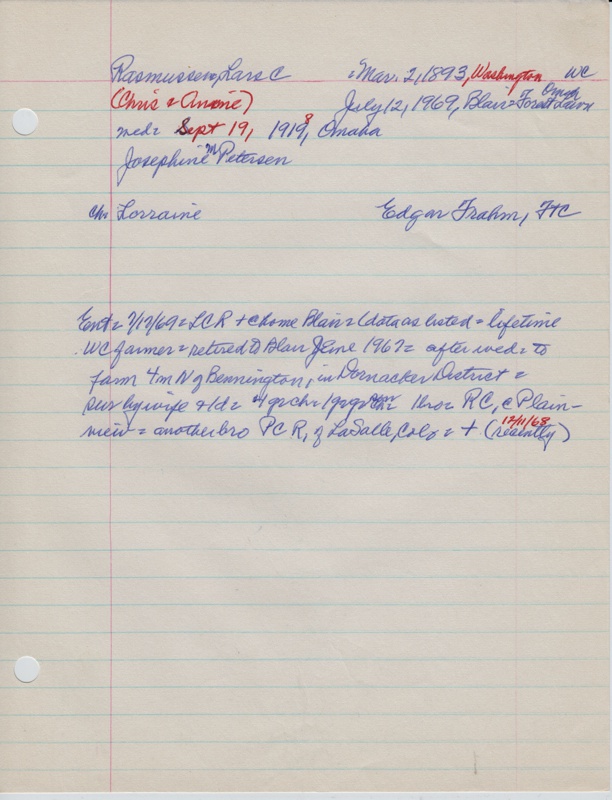 Rasmussen, Lars C = Mar. 2, 1893, Washington WC
(Chris & Anine) July 12, 1969, Blair = Forest Lawn Omah
wed = Sept 19, 1919 8, Omaha
Josephine M Petersen
Ch Lorraine Edgar Frahm, FtC
Ent = 7/17/69 = LCR + c home Blair = (data as listed = lifetime
WC farmer = retired to Blair June 1967 = after wed = to
farm 4 m N of Bennington, in Dornacker District =
surv by wife + 1d = 4 grch = 1 grgr 1 bro = RC, c Plain-
view = another bro PCR, of LaSalle, Colo = + (recently) 12/11/68